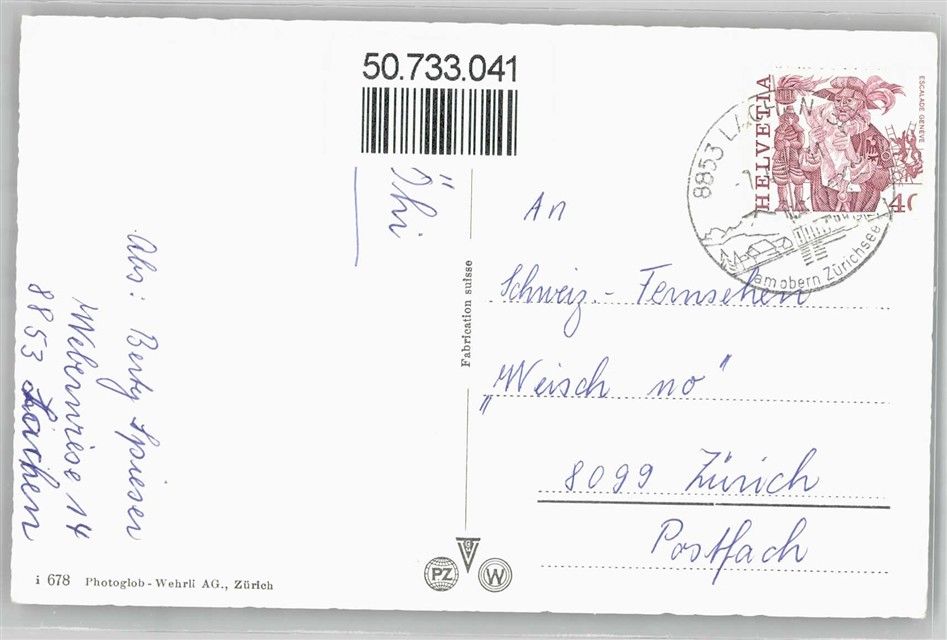 50.733.041
HELVETIA
ESCALADE GENÈVE
40
8853 LACHEN
am obern Zürichsee
Ihr
Abs: Berty Spieser
8853 Lachen
Fabrication suisse
An
Schweiz.- Fernsehen
„Weisch no"
8099 Zürich
Postfach
PZ
W
i 678 Photoglob-Wehrli AG., Zürich